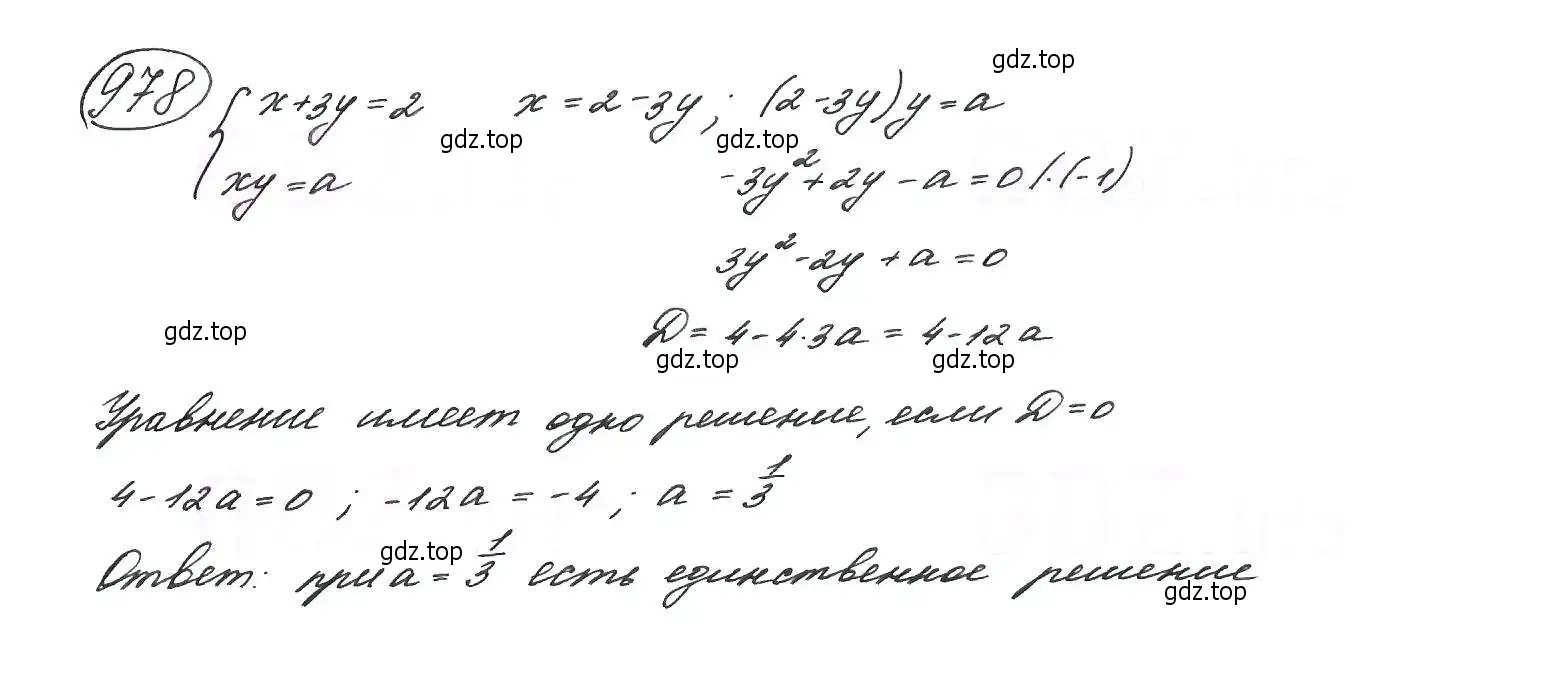 gdz.top
978 { x+3y=2   x=2-3y; (2-3y)y=a
gdz.top gdz.top
xy=a   -3y²+2y-a=0 /·(-1)
3y²-2y+a=0
gdz.top D=4-4·3a=4-12a
gdz.top gdz.top
Уравнение имеет одно решение, если D=0
4-12a=0; -12a=-4; a=1/3
gdz.top
Ответ: при a=1/3 есть единственное решение
gdz.top